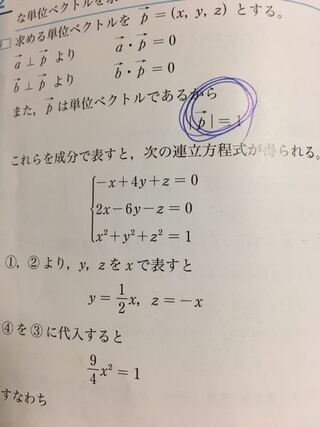 な単位ベクトルを
p⃗=(x, y, z) とする。
求める単位ベクトル
a⃗⊥p⃗ より a⃗・p⃗=0
b⃗⊥p⃗ より b⃗・p⃗=0
また，p⃗は単位ベクトルであるから
|p⃗|=1
これらを成分で表すと，次の連立方程式が得られる。
-x+4y+z=0
2x-6y-z=0
x²+y²+z²=1
①，②より，y, zをxで表すと
y=1/2x, z=-x
④を③に代入すると
9/4x²=1
すなわち